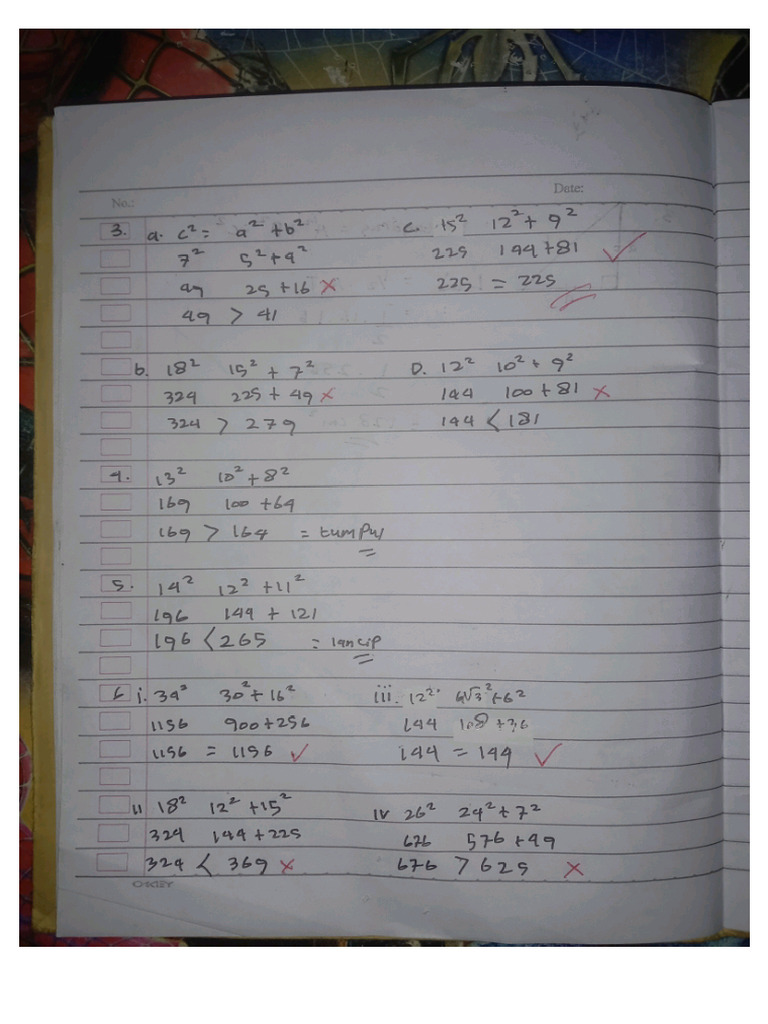 No.: Date:
3. a. c² = a² + b²
7² 5² + 4²
49 25 + 16 ×
49 > 41
c. 15² 12² + 9²
225 144 + 81 ✓
225 = 225
b. 18² 15² + 7²
324 225 + 49 ×
324 > 279
D. 12² 10² + 9²
144 100 + 81 ×
144 < 181
4. 13² 10² + 8²
169 100 + 64
169 > 164 = tumpul
5. 14² 12² + 11²
196 144 + 121
196 < 265 = lancip
6 i. 34² 30² + 16²
1156 900 + 256
1156 = 1156 ✓
iii. 12² 6√3² + 6²
144 108 + 36
144 = 144 ✓
ii 18² 12² + 15²
324 144 + 225
324 < 369 ×
iv 26² 24² + 7²
676 576 + 49
676 > 625 ×